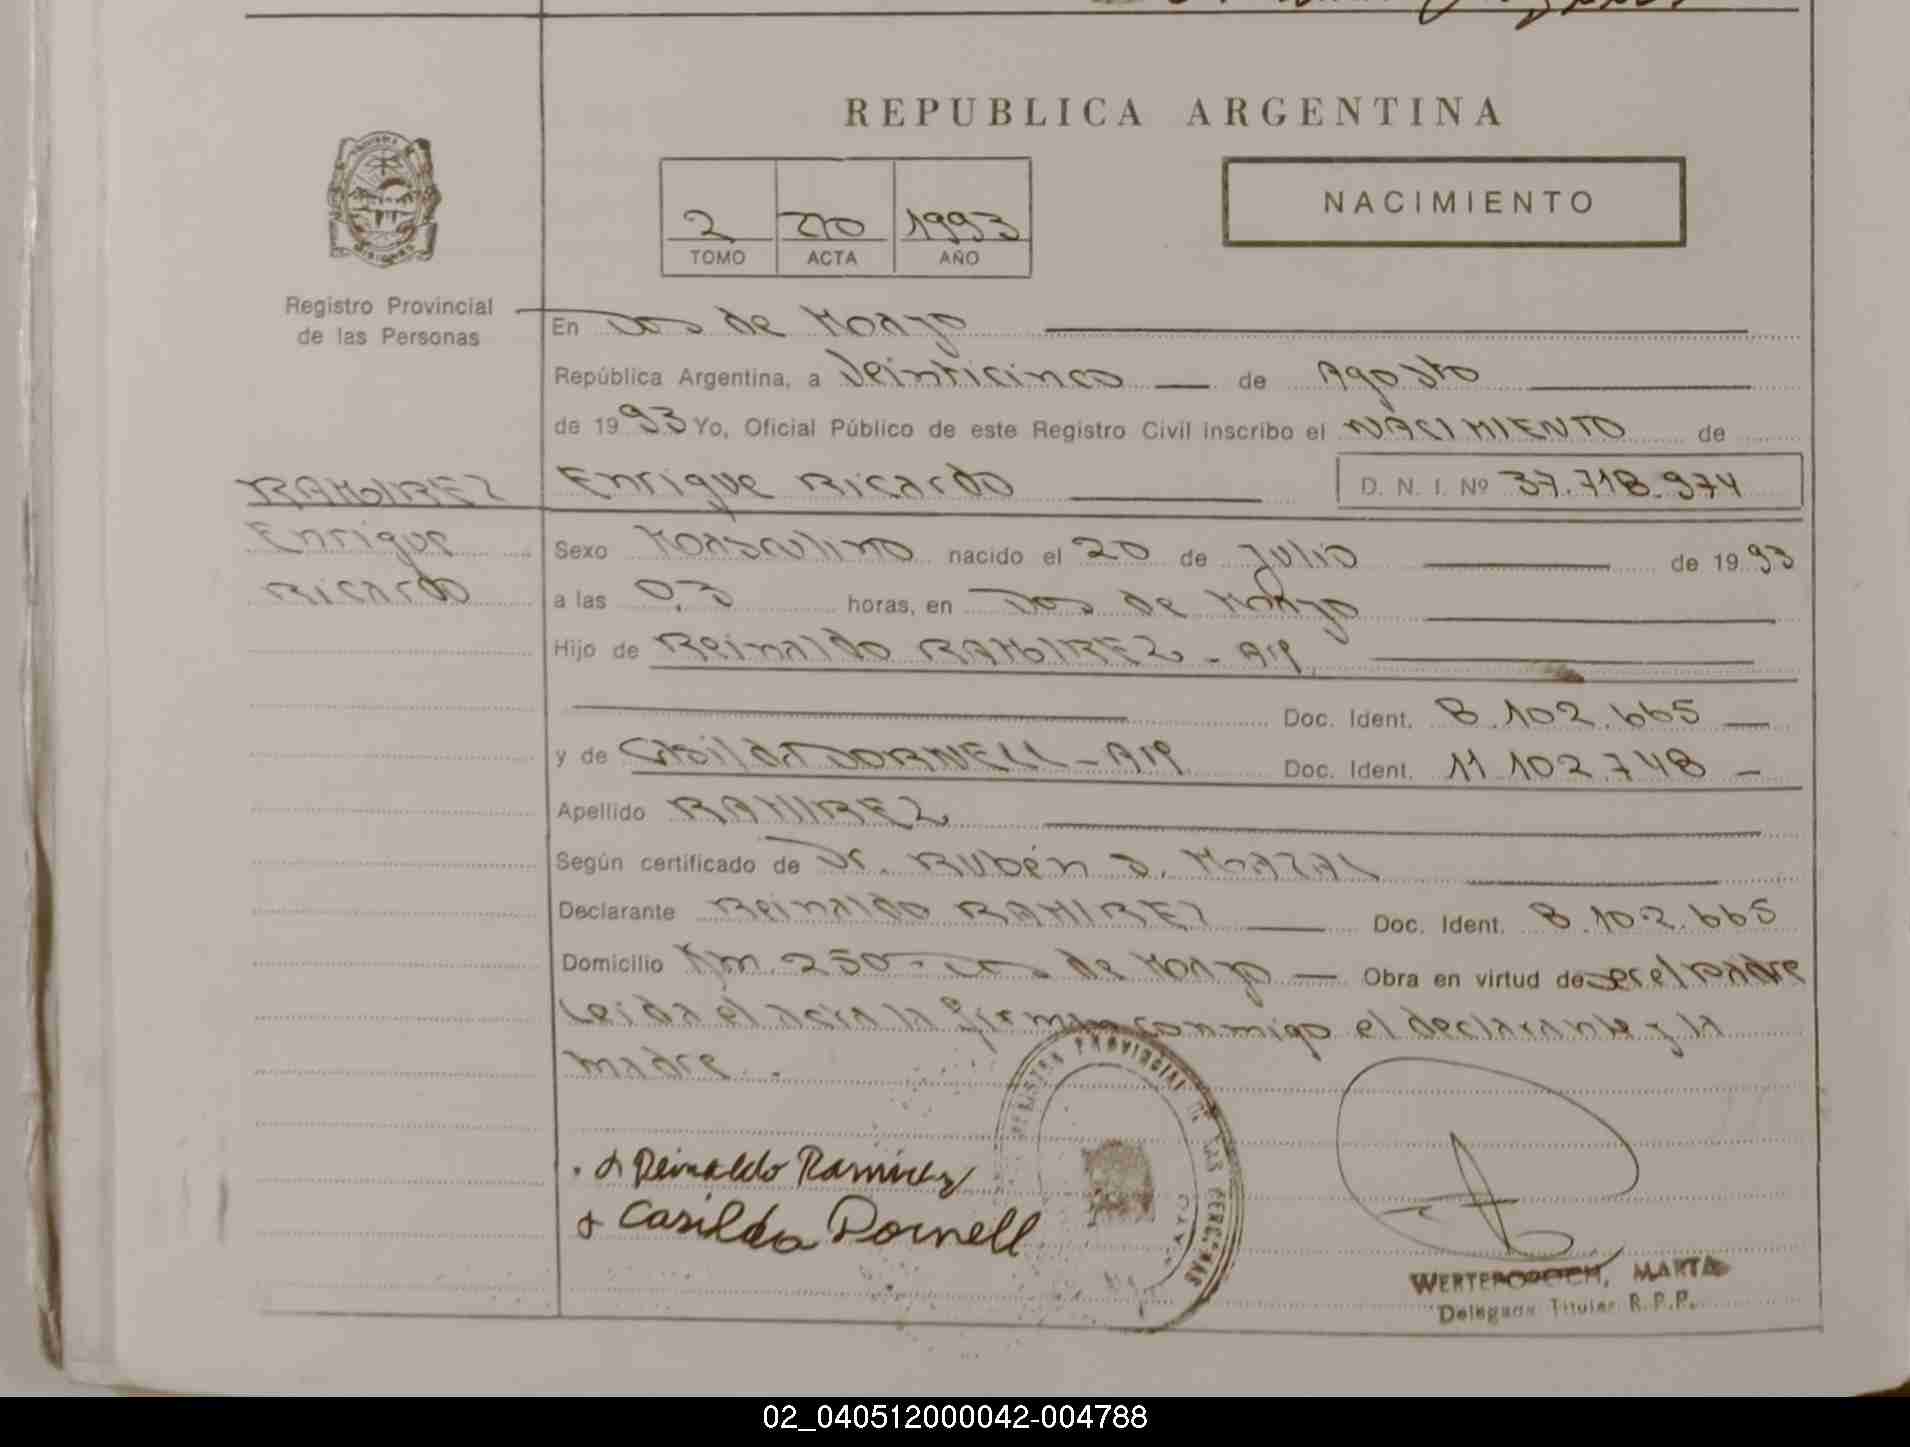 REPUBLICA ARGENTINA
NACIMIENTO
2 270 1993
TOMO ACTA AÑO
Registro Provincial
de las Personas
En Dos de Mayo
República Argentina, a Veinticinco de Agosto
de 1993 Yo, Oficial Público de este Registro Civil inscribo el NACIMIENTO de
RAMIREZ Enrique Ricardo D. N. I. Nº 37.718.974
Enrique
Ricardo
Sexo Masculino nacido el 20 de Julio de 1993
a las 0,3 horas, en Dos de Mayo
Hijo de Reinaldo RAMIREZ - Arg
Doc. Ident. 8.102.665
y de Casilda DORNELL - Arg Doc. Ident. 11.102.748
Apellido RAMIREZ
Según certificado de Dr. Rubén D. MAZAL
Declarante Reinaldo RAMIREZ Doc. Ident. 8.102.665
Domicilio Km. 250 - Dos de Mayo Obra en virtud de ser el padre
Leida el acta la firman conmigo el declarante y la
madre.
REGISTRO PROVINCIAL DE LAS PERSONAS
Reinaldo Ramirez
Casilda Dornell
MARTA
Delegada Titular R.P.P.
02_040512000042-004788